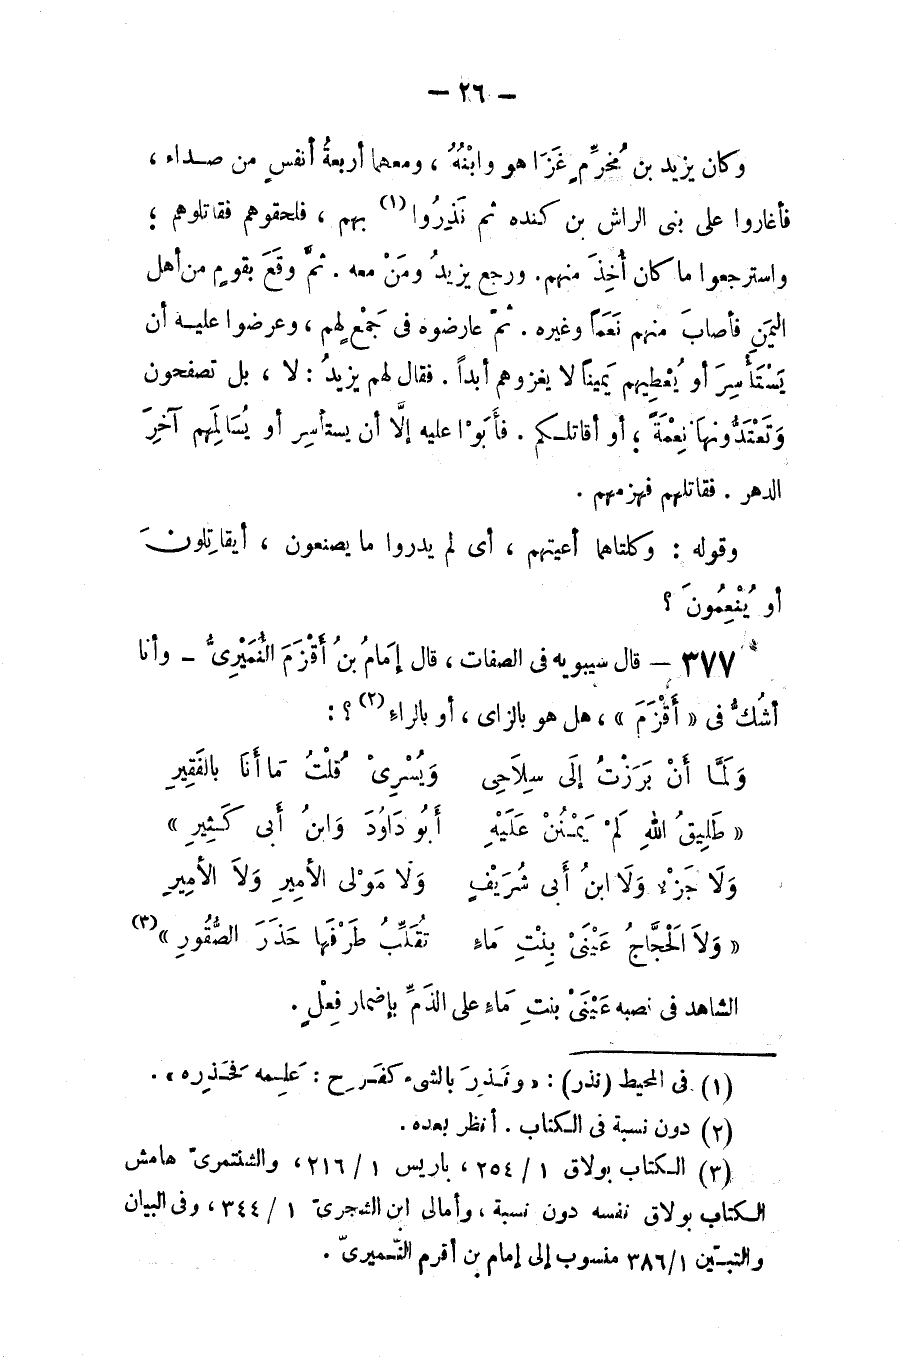 — ٢٦ —
وكان يزيد بن مُخَرِّمٍ غَزَا هو وابْنُهُ ، ومعهما أربعةُ أنفسٍ من صداء ،
فأغاروا على بنى الراش بن كنده ثم نَذِرُوا (١) بهم ، فلحقوهم فقاتلوهم ؛
واسترجعوا ما كان أُخِذَ منهم. ورجع يزيدُ ومَنْ معه . ثمَّ وقَعَ بقومٍ من أهل
اليَمَنِ فأصابَ منهم نَعَمَاً وغيره . ثمّ عارضوه فى جَمْعٍ لهم ، وعرضوا عليه أن
يَسْتَأْسِرَ أو يُعْطِيهم يَميناً لا يغزوهم أبداً . فقال لهم يزيدُ : لا ، بل تصفحون
وَتَعْتَدُّونها نِعْمَةً ؛ أو أقاتلكم . فأَبَوْا عليه إلَّا أن يستأسِر أو يُسَالِمَهم آخِرَ
الدهر . فقاتلهم فهزمهم .
وقوله : وكلتاهما أعيتهم ، أى لم يدروا ما يصنعون ، أيقاتِلونَ
أو يُنْعِمُونَ ؟
* ٣٧٧ — قال سيبويه فى الصفات ، قال إمَامُ بنُ أَقْزَمَ النُّمَيْرِىُّ - وأنا
أشُكُّ فى « أَقْزَمَ » ، هل هو بالزاى ، أو بالراء (٢) ؟ :
وَلَمَّا أَنْ بَرَزْتُ إلَى سِلَاحِى وَيُسْرِىْ قُلْتُ مَا أَنَا بالفَقِيرِ
« طَلِيقُ اللهِ لَمْ يَمْنُنْ عَلَيْهِ أَبُو دَاوُدَ وَابنُ أَبى كَثِيرِ »
وَلَا جَزْءٌ وَلَا ابنُ أَبى شُرَيْفٍ وَلَا مَوْلى الأميرِ وَلاَ الأميرِ
« وَلاَ الْحَجَّاجُ عَيْنَىْ بِنْتِ مَاءِ تُقَلِّبُ طَرْفَها حَذَرَ الصُّقُورِ »(٣)
الشاهد فى نصبه عَيْنَىْ بنتِ مَاءِ على الذَمِّ بإضمار فِعْلٍ .
(١) فى المحيط (نذر) : « ونَذِرَ بالشىء كفَرِح : عَلِمه فَحَذِره » .
(٢) دون نسبة فى الكتاب . أنظر بعده .
(٣) الكتاب بولاق ١ / ٢٥٤ ، باريس ١ / ٢١٦ ، والشنتمرىّ هامش
الكتاب بولاق نفسه دون نسبة ، وأمالى ابن الشجرىّ ١ / ٣٤٤ ، وفى البيان
والتبيّن ١/ ٣٨٦ منسوب إلى إمام بن أقرم النّميرىّ .